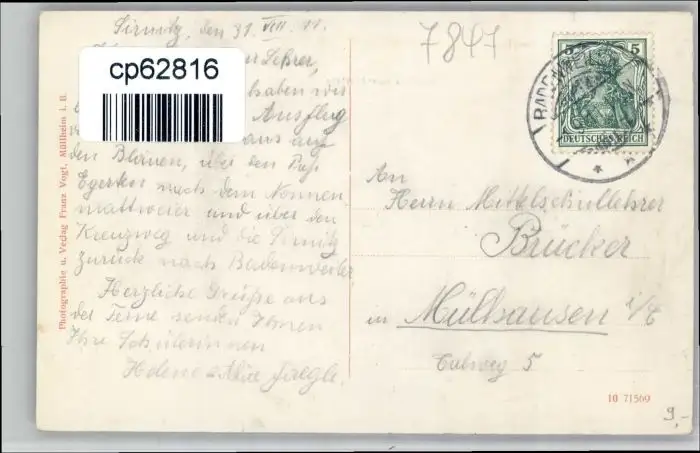 Sirnitz, den 31. VIII. 11.
7847
Lehrer,
cp62816
haben wir
Ausflug
aus auf
den Blauen, über den Paß
Egerten nach dem Nonnen-
mattweier und über den
Kreuzweg und die Sirnitz
zurück nach Badenweiler
Herzliche Grüße aus
der Ferne senden Ihnen
Ihre Schülerinnen
Helene u Alice Jaegle.
Photographie u. Verlag Franz Vogt, Müllheim i. B.
5 5
DEUTSCHES REICH
BADENWEILER
An
Herrn Mittelschullehrer
Brücker
in Mülhausen i/E
5
10 71569
9,-